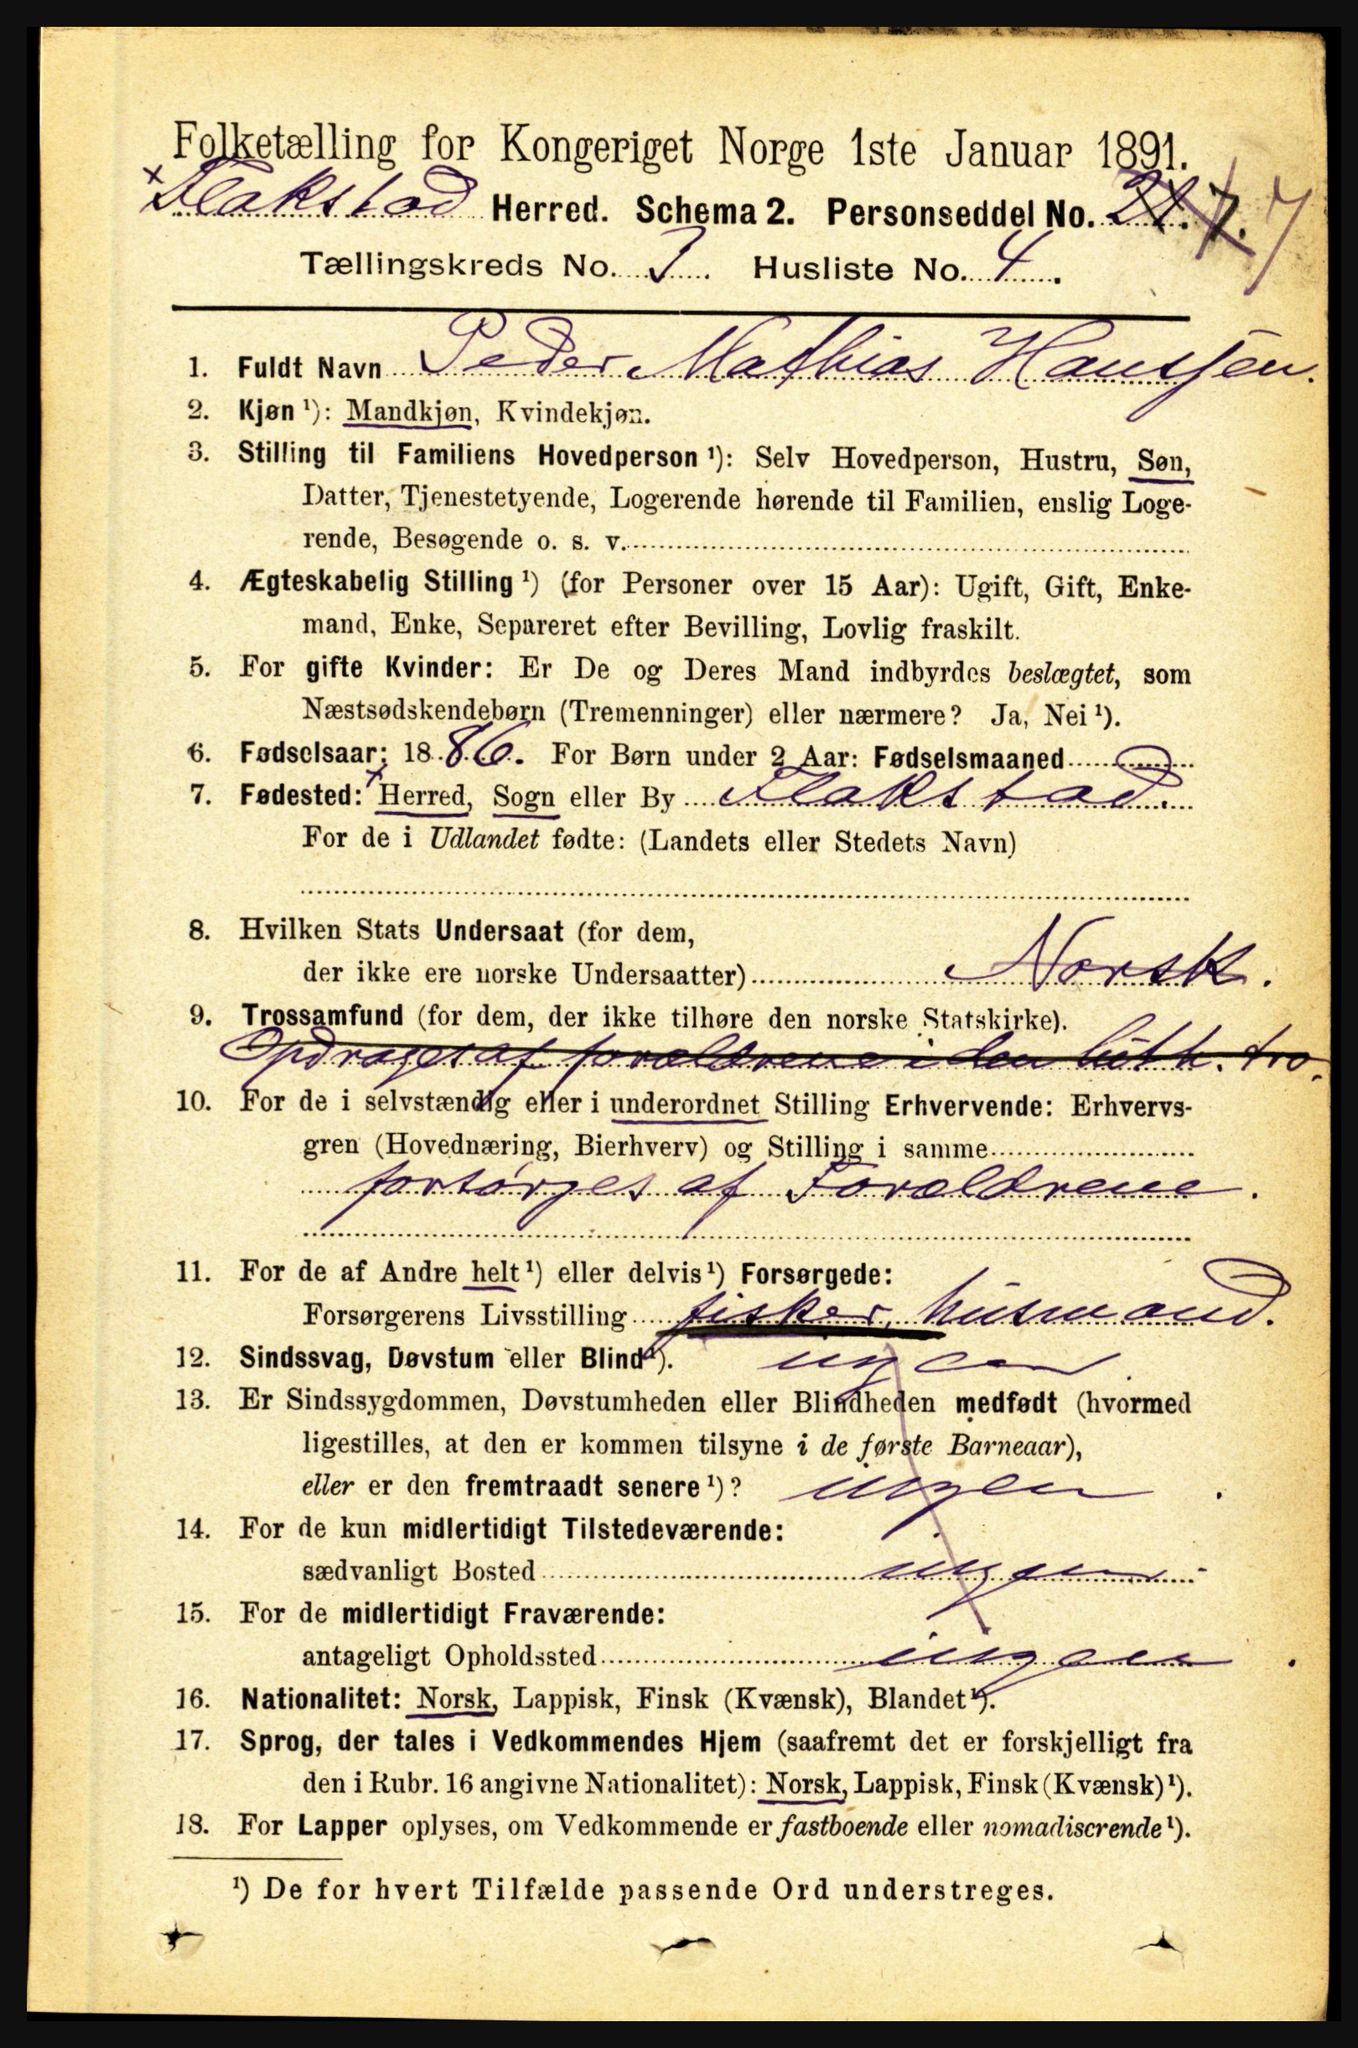 Folketælling for Kongeriget Norge 1ste Januar 1891.
× Flakstad Herred. Schema 2. Personseddel No. 21. 7. 7
Tællingskreds No. 3. Husliste No. 4.
1. Fuldt Navn Peder Mathias Hanssen.
2. Kjøn ¹): Mandkjøn, Kvindekjøn.
3. Stilling til Familiens Hovedperson ¹): Selv Hovedperson, Hustru, Søn,
Datter, Tjenestetyende, Logerende hørende til Familien, enslig Loge-
rende, Besøgende o. s. v.
4. Ægteskabelig Stilling ¹) (for Personer over 15 Aar): Ugift, Gift, Enke-
mand, Enke, Separeret efter Bevilling, Lovlig fraskilt.
5. For gifte Kvinder: Er De og Deres Mand indbyrdes beslægtet, som
Næstsødskendebørn (Tremenninger) eller nærmere? Ja, Nei ¹).
6. Fødselsaar: 1886. For Børn under 2 Aar: Fødselsmaaned
7. Fødested: × Herred, Sogn eller By Flakstad.
For de i Udlandet fødte: (Landets eller Stedets Navn)
8. Hvilken Stats Undersaat (for dem,
der ikke ere norske Undersaatter) Norsk.
9. Trossamfund (for dem, der ikke tilhøre den norske Statskirke).
Opdrages af forældrene i den luth. tro.
10. For de i selvstændig eller i underordnet Stilling Erhvervende: Erhvervs-
gren (Hovednæring, Bierhverv) og Stilling i samme
forsørges af Forældrene.
11. For de af Andre helt ¹) eller delvis ¹) Forsørgede:
Forsørgerens Livsstilling fisker, husmand.
12. Sindssvag, Døvstum eller Blind ¹). ingen
13. Er Sindssygdommen, Døvstumheden eller Blindheden medfødt (hvormed
ligestilles, at den er kommen tilsyne i de første Barneaar),
eller er den fremtraadt senere ¹)? ingen.
14. For de kun midlertidigt Tilstedeværende:
sædvanligt Bosted ingen
15. For de midlertidigt Fraværende:
antageligt Opholdssted ingen.
16. Nationalitet: Norsk, Lappisk, Finsk (Kvænsk), Blandet ¹).
17. Sprog, der tales i Vedkommendes Hjem (saafremt det er forskjelligt fra
den i Rubr. 16 angivne Nationalitet): Norsk, Lappisk, Finsk (Kvænsk) ¹).
18. For Lapper oplyses, om Vedkommende er fastboende eller nomadiserende ¹).
¹) De for hvert Tilfælde passende Ord understreges.